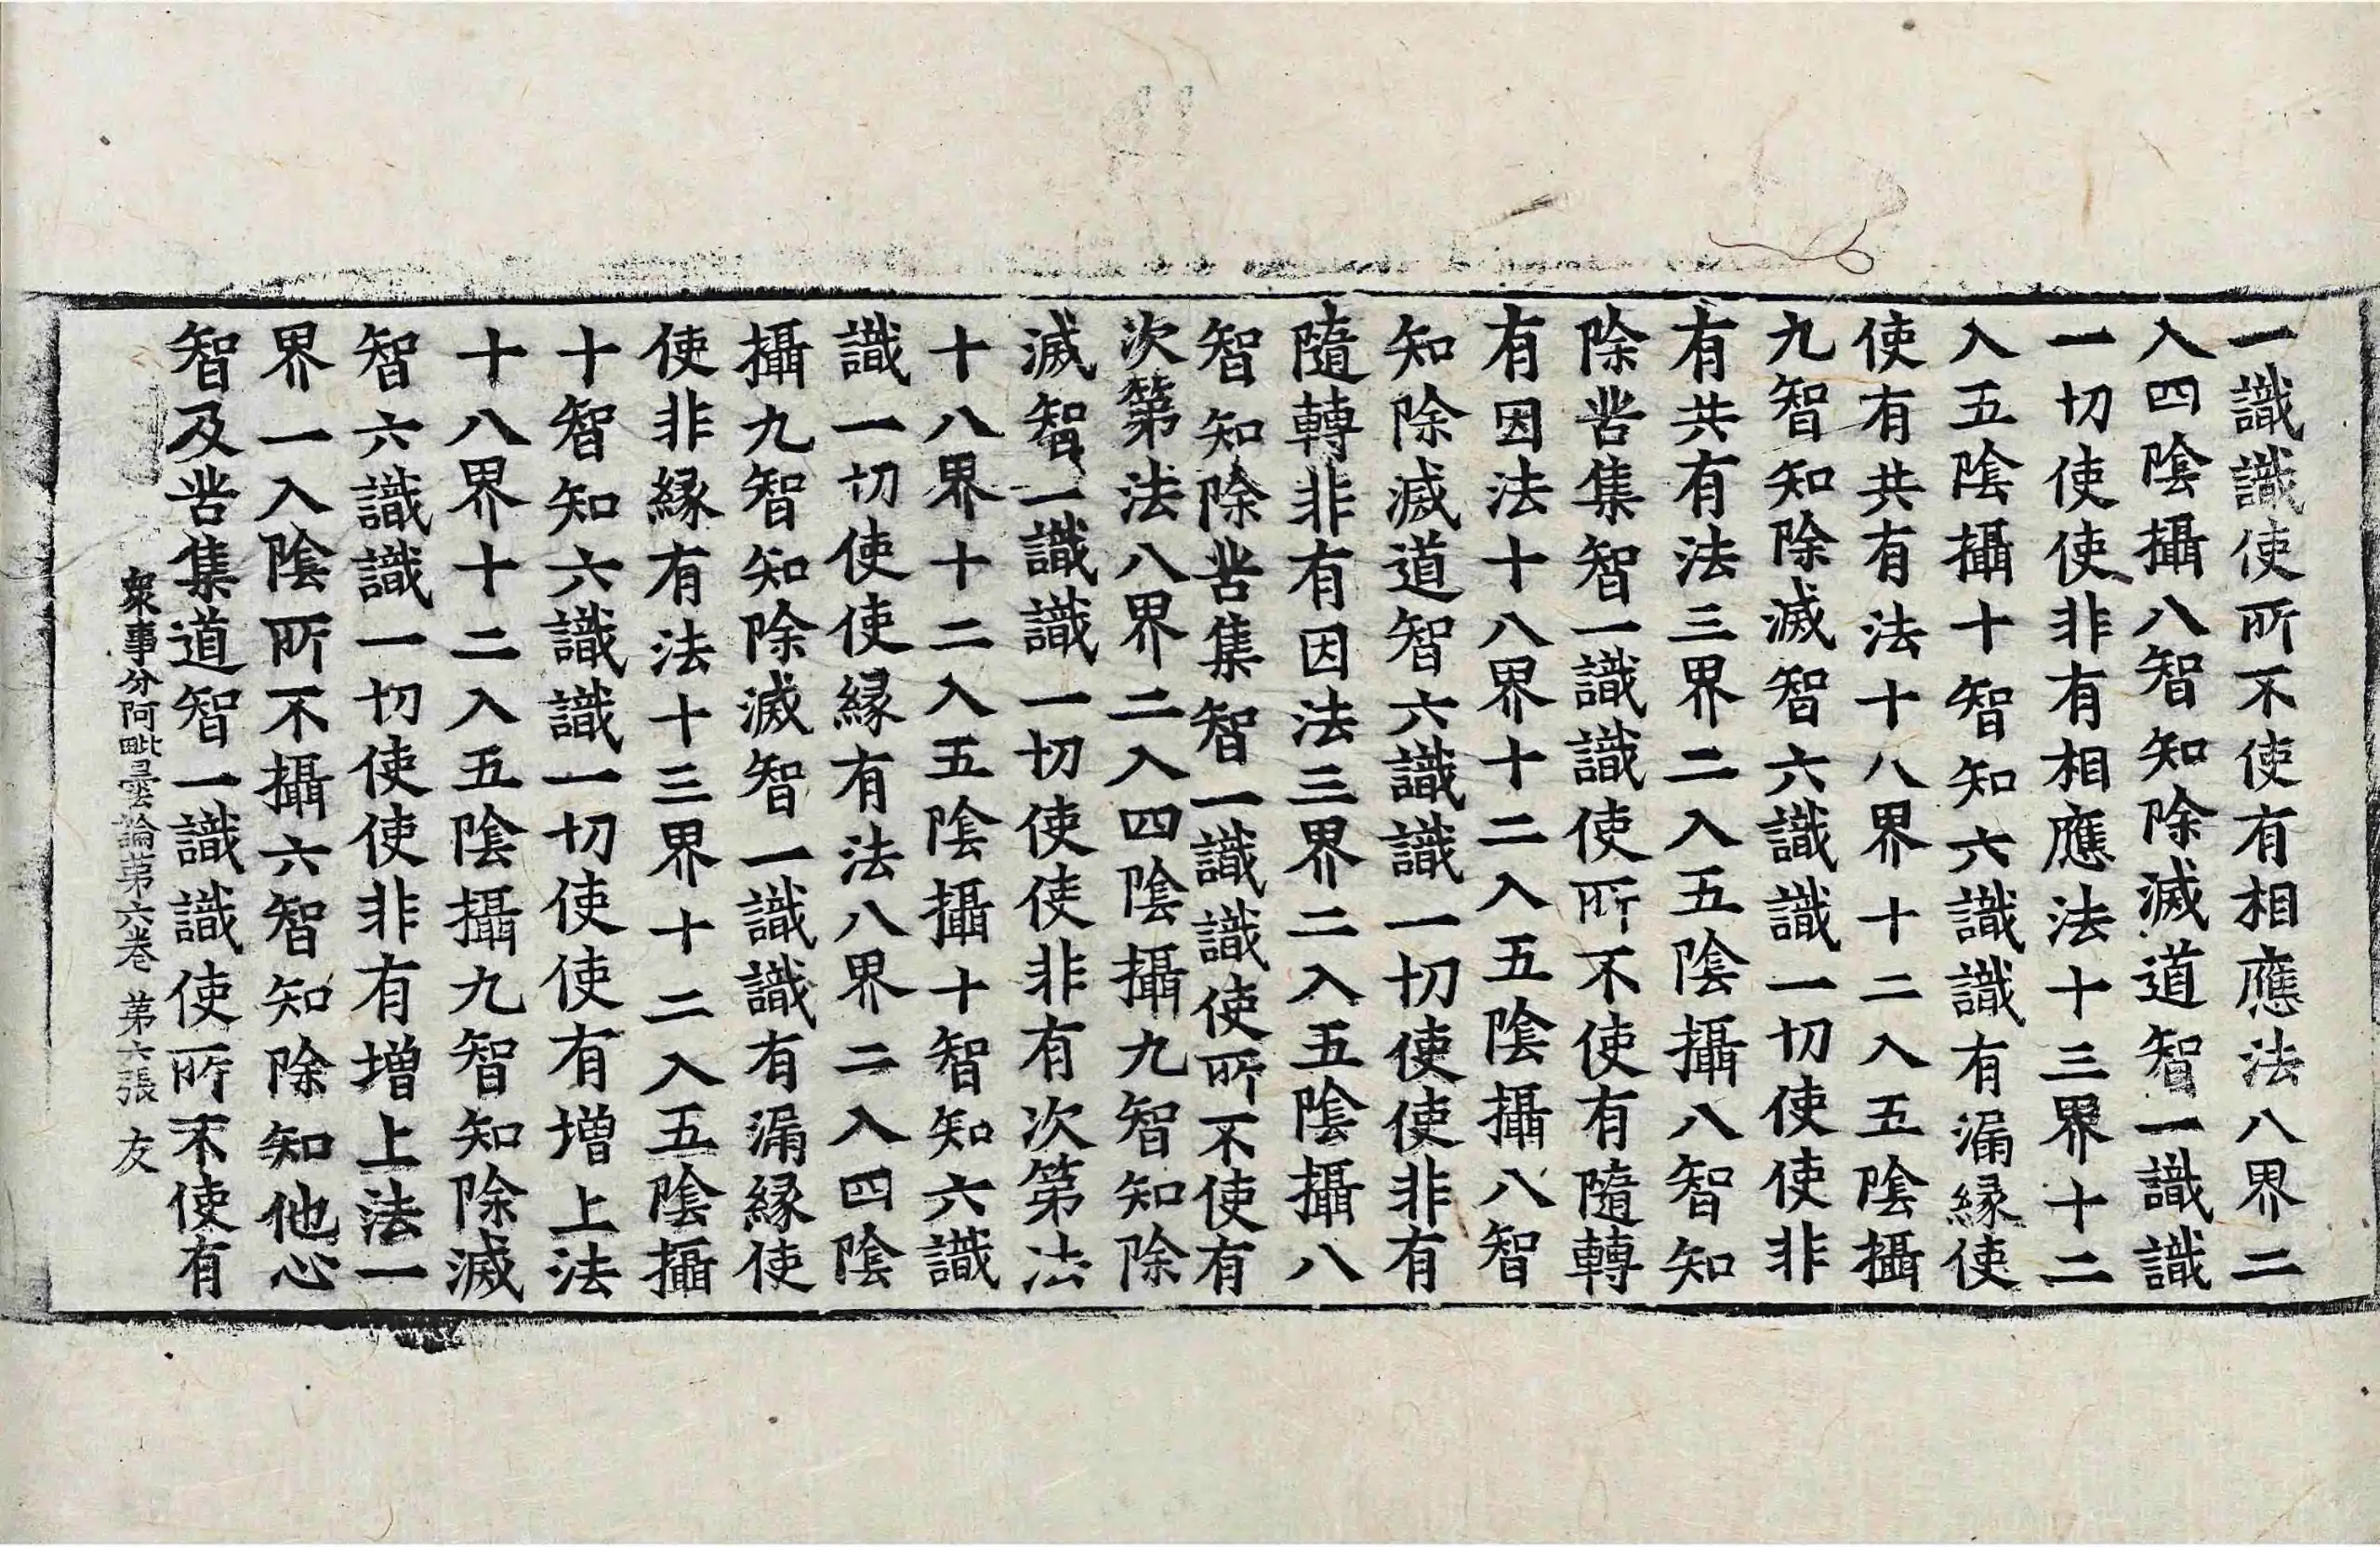 一識識使所不使有相應法八界二
入四陰攝八智知除滅道智一識識
一切使使非有相應法十三界十二
入五陰攝十智知六識識有漏緣使
使有共有法十八界十二入五陰攝
九智知除滅智六識識一切使使非
有共有法三界二入五陰攝八智知
除苦集智一識識使所不使有隨轉
有因法十八界十二入五陰攝八智
知除滅道智六識識一切使使非有
隨轉非有因法三界二入五陰攝八
智知除苦集智一識識使所不使有
次第法八界二入四陰攝九智知除
滅智一識識一切使使非有次第法
十八界十二入五陰攝十智知六識
識一切使使緣有法八界二入四陰
攝九智知除滅智一識識有漏緣使
使非緣有法十三界十二入五陰攝
十智知六識識一切使使有增上法
十八界十二入五陰攝九智知除滅
智六識識一切使使非有增上法一
界一入陰所不攝六智知除知他心
智及苦集道智一識識使所不使有
衆事分阿毗曇論第六卷 第六張 友